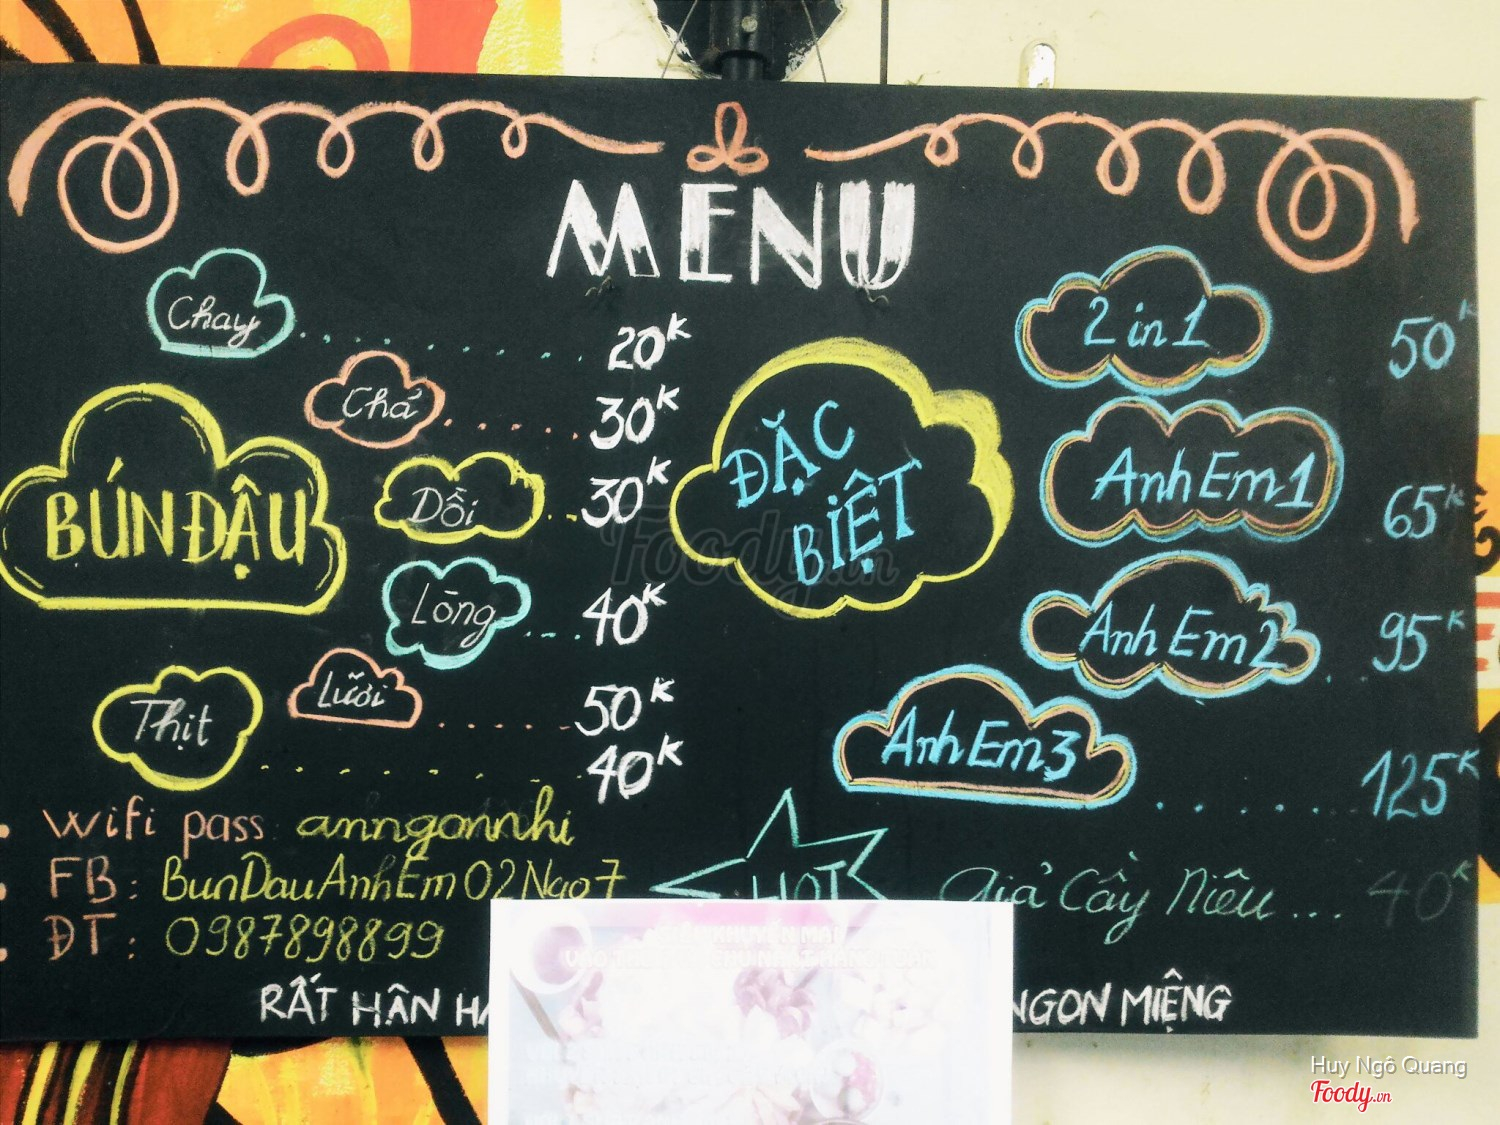 MENU
BÚN ĐẬU
Chay 20K
Chả 30K
Dồi 30K
Lòng 40K
Lưỡi 50K
Thịt 40K
ĐẶC
BIỆT
2 in 1 50K
Anh Em 1 65K
Anh Em 2 95K
Anh Em 3 125K
HOT
Giả Cầy Niêu ... 40K
Wifi pass: anngonnhi
FB: BunDauAnhEm02Ngo7
ĐT: 0987898899
RẤT HÂN HẠ
NGON MIỆNG
Foody.vn
Huy Ngô Quang
Foody.vn